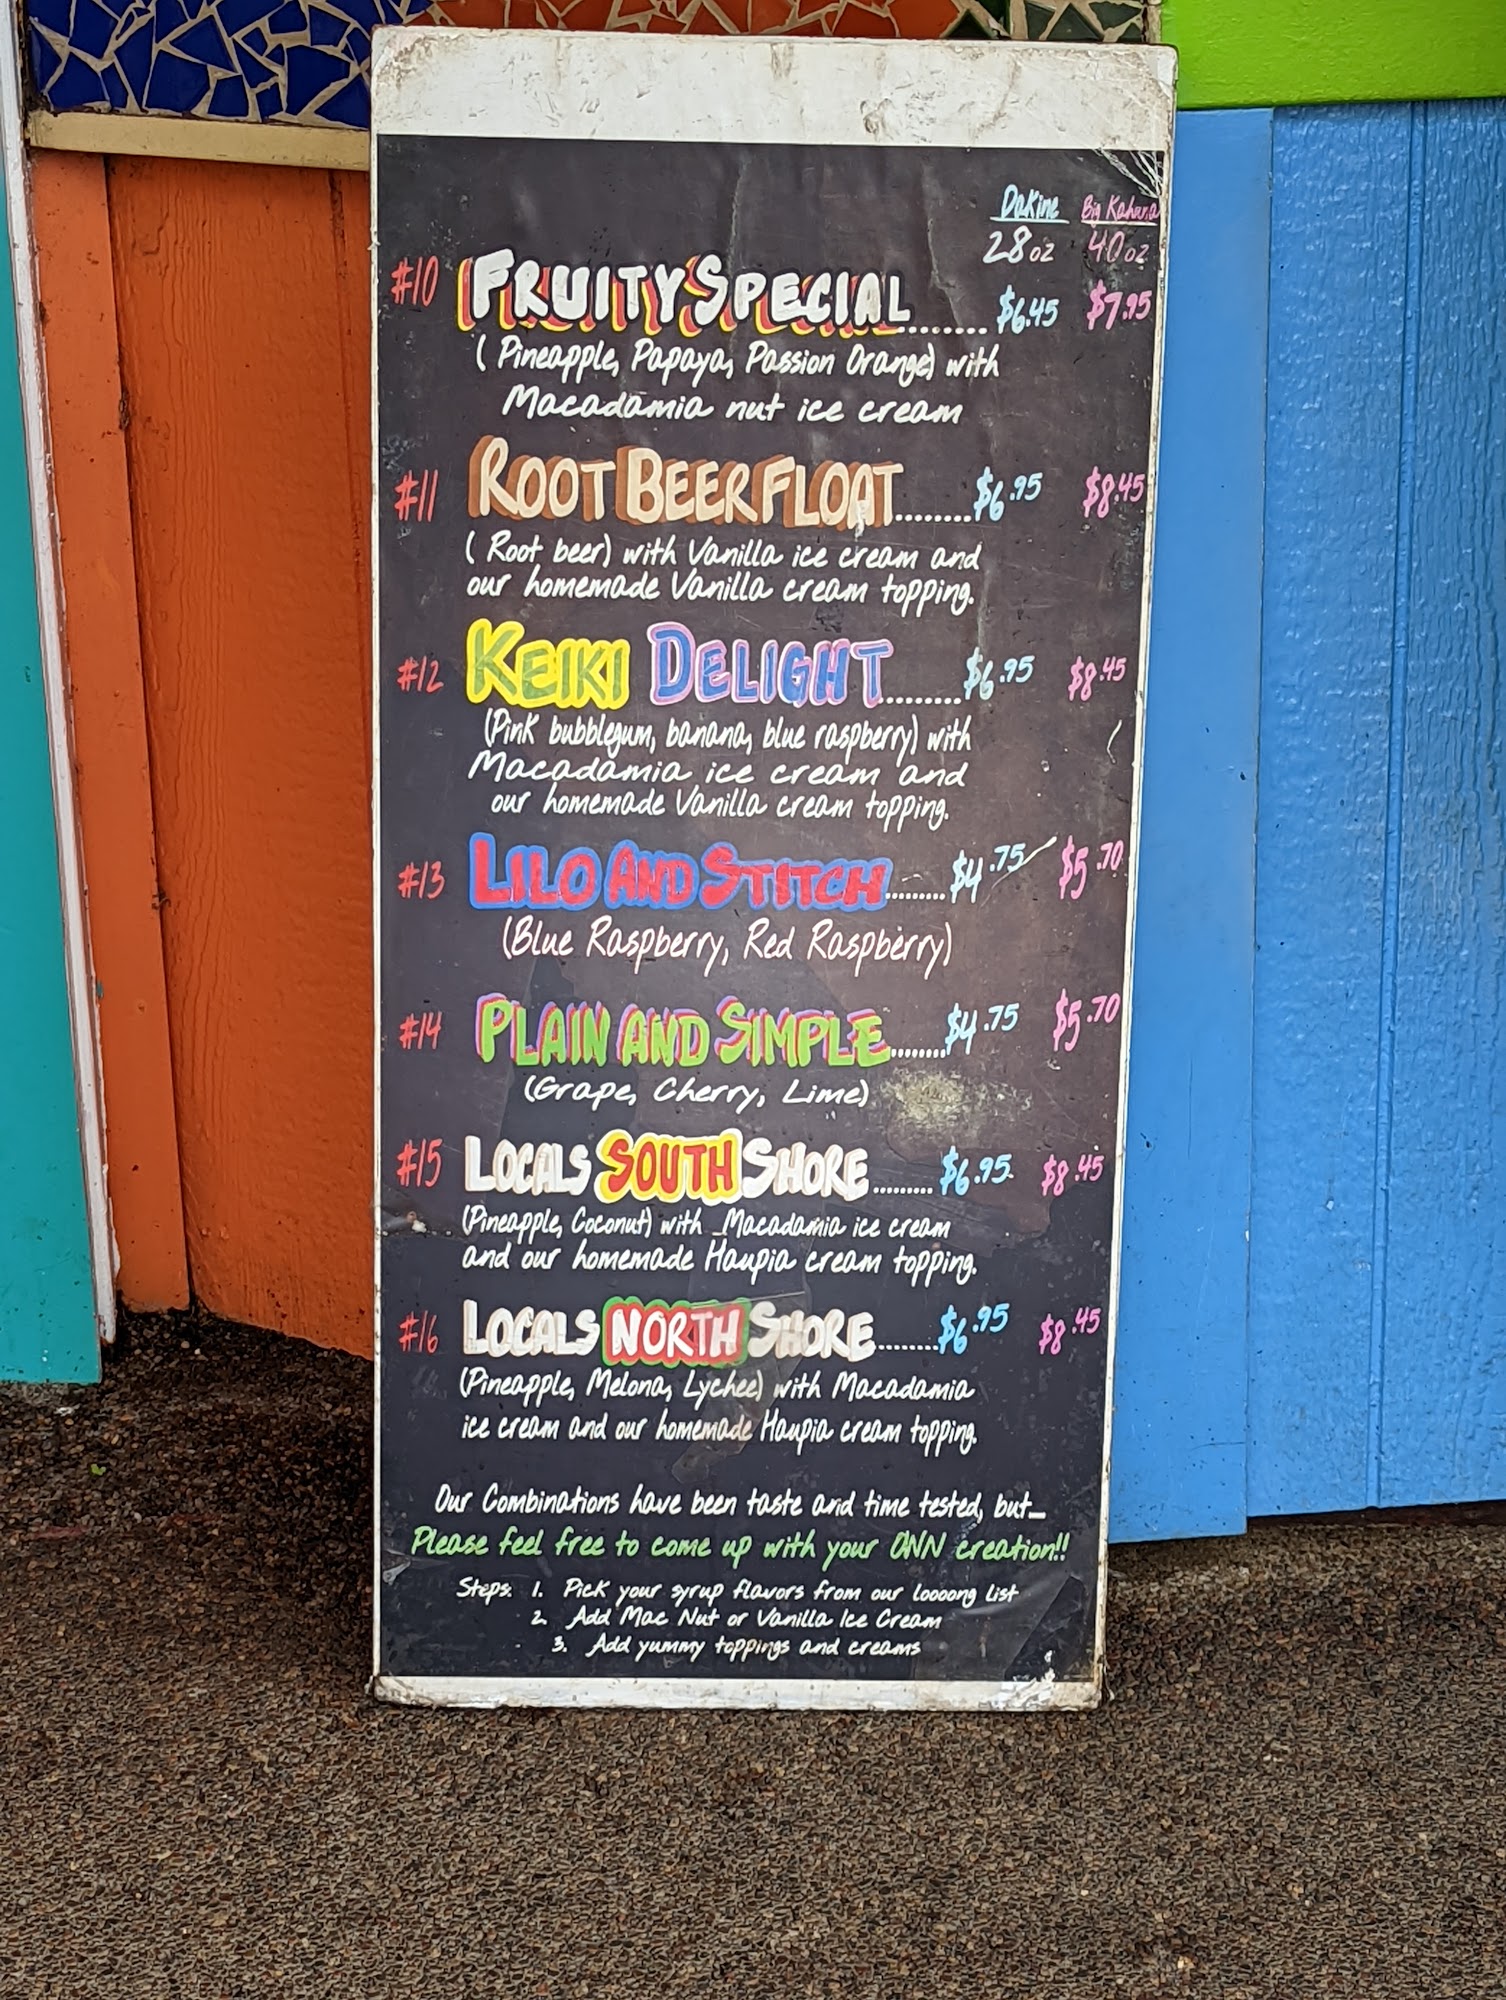 DaKine Big Kahuna
28oz 40oz
#10 FRUITY SPECIAL......... $6.45 $7.95
( Pineapple, Papaya, Passion Orange) with
Macadamia nut ice cream
#11 ROOT BEER FLOAT......... $6.95 $8.45
( Root beer) with Vanilla ice cream and
our homemade Vanilla cream topping.
#12 KEIKI DELIGHT......... $6.95 $8.45
(Pink bubblegum, banana, blue raspberry) with
Macadamia ice cream and
our homemade Vanilla cream topping.
#13 LILO AND STITCH......... $4.75 $5.70
(Blue Raspberry, Red Raspberry)
#14 PLAIN AND SIMPLE......... $4.75 $5.70
(Grape, Cherry, Lime)
#15 LOCALS SOUTH SHORE......... $6.95 $8.45
(Pineapple, Coconut) with Macadamia ice cream
and our homemade Haupia cream topping.
#16 LOCALS NORTH SHORE......... $6.95 $8.45
(Pineapple, Melona, Lychee) with Macadamia
ice cream and our homemade Haupia cream topping.
Our Combinations have been taste and time tested, but...
Please feel free to come up with your OWN creation!!
Steps: 1. Pick your syrup flavors from our loooong list
2. Add Mac Nut or Vanilla Ice Cream
3. Add yummy toppings and creams